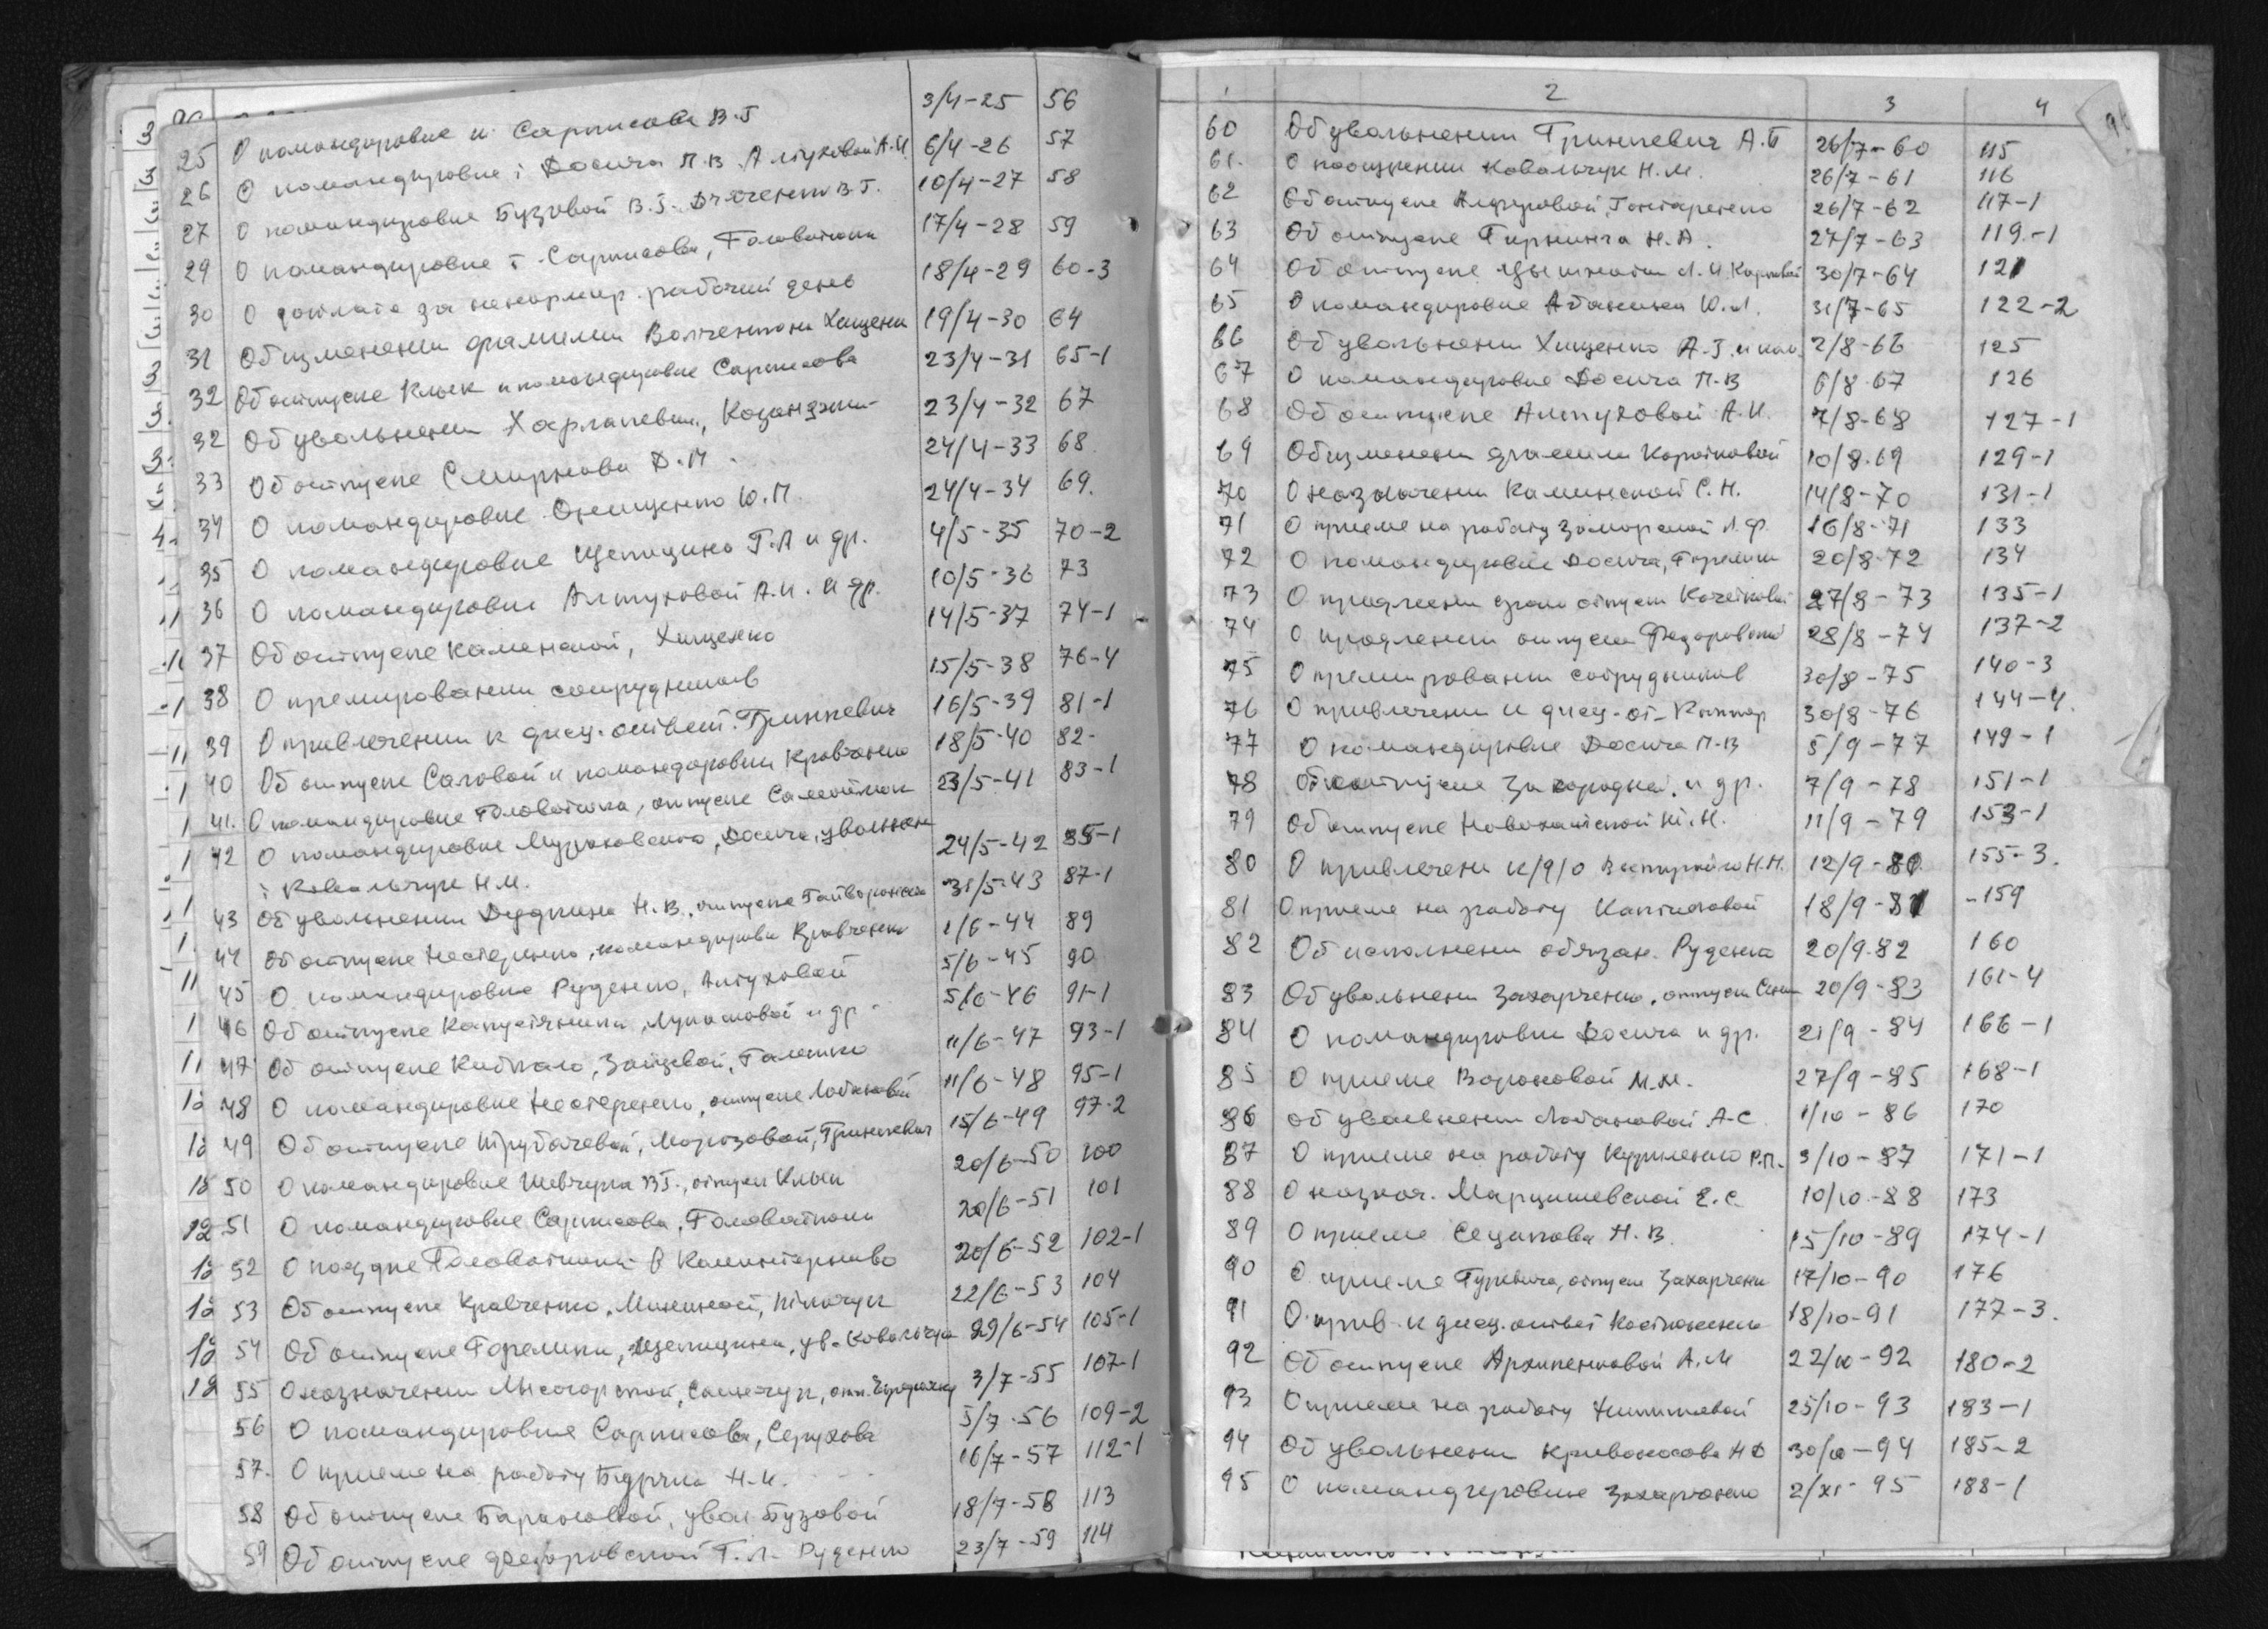 25 О командировке т. Саркисова В.Г 3/4-25 56
26 О командировке т Досича П.В. Алтуховой А.И. 6/4-26 57
27 О командировке Бузовой В.Г. Дьяченко В.Г. 10/4-27 58
29 О командировке т. Саркисова, Головатюка 17/4-28 59
30 О доплате за ненормир. рабочий день 18/4-29 60-3
31 Об изменении фамилии Хищенко 19/4-30 64
32 Об отпуске Клык и командировке Саркисова 23/4-31 65-1
32 Об увольнении Харлапевич, 23/4-32 67
33 Об отпуске Смирнова Д.П. 24/4-33 68
34 О командировке Онищенко Ю.П. 24/4-34 69.
35 О командировке Щепицина Г.Л и др. 4/5-35 70-2
36 О командировке Алтуховой А.И. и др. 10/5-36 73
37 Об отпуске Каменской, Хищенко 14/5-37 74-1
38 О премировании сотрудников 15/5-38 76-4
39 О привлечении к дисц. ответ. Гринкевич 16/5-39 81-1
40 Об отпуске Саловой и командировки Кравченко 18/5-40 82-
41. О командировке Головатюка, отпуске Самойлюк 23/5-41 83-1
42 О командировке Досича, увольнен 24/5-42 85-1
т Ковальчук Н.М.
43 Об увольнении Дудкина Н.В., отпуске Гайворонской 31/5-43 87-1
44 Об отпуске Нестеренко, командировке Кравченко 1/6-44 89
45 О командировке Руденко, Алтуховой 5/6-45 90
46 Об отпуске Капустянская, Лукашовой и др. 5/6-46 91-1
47 Об отпуске Зайцевой, Галетко 11/6-47 93-1
48 О командировке Нестеренко, отпуске Лобановой 11/6-48 95-1
49 Об отпуске Трубачевой, Морозовой, Гринкевич 15/6-49 97-2
50 О командировке Шевчука В.Г., отпуск Клык 20/6-50 100
51 О командировке Саркисова, Головатюка 20/6-51 101
52 О поездке Головатюка в Коминтерново 20/6-52 102-1
53 Об отпуске Кравченко, 22/6-53 104
54 Об отпуске Горелика, Щепицина, ув. Ковальчук 29/6-54 105-1
55 О назначении 3/7-55 107-1
56 О командировке Саркисова, Серухова 5/7-56 109-2
57. О приеме на работу Н.И. 16/7-57 112-1
58 Об отпуске Барановой, увол Бузовой 18/7-58 113
59 Об отпуске Федоровской Г.Л. Руденко 23/7-59 114
1 2 3 4
60 Об увольнении Гринкевич А.Б 26/7-60 115
61. О поощрении Ковальчук Н.М. 26/7-61 116
62 Об отпуске Алферовой, Гонтаренко 26/7-62 117-1
63 Об отпуске Н.А. 27/7-63 119-1
64 Об отпуске Л.И. Карповой 30/7-64 121
65 О командировке Абакина Ю.Л. 31/7-65 122-2
66 Об увольнении Хищенко А.З. и ком. 2/8-66 125
67 О командировке Досича П.В 6/8-67 126
68 Об отпуске Алтуховой А.И. 7/8-68 127-1
69 Об изменен фамилии Коротковой 10/8-69 129-1
70 О назначении Каминской С.Н. 14/8-70 131-1
71 О приеме на работу Заморской Л.Ф. 16/8-71 133
72 О командировке Досича, Горелик 20/8-72 134
73 О продлении срока отпуска Кочетковой 27/8-73 135-1
74 О продлении отпуска Федоровской 28/8-74 137-2
75 О премировании сотрудников 30/8-75 140-3
76 О привлечении к дисц. от- 30/8-76 144-4.
77 О командировке Досича П.В 5/9-77 149-1
78 Об отпуске Загородней, и др. 7/9-78 151-1
79 Об отпуске Новохатской Н. 11/9-79 153-1
80 О привлечени к/д/о Н.Н. 12/9-80 155-3.
81 О приеме на работу 18/9-81 -159
82 Об исполнени обязан. Руденко 20/9-82 160
83 Об увольнени Захарченко, отпуск 20/9-83 161-4
84 О командировки Досича и др. 21/9-84 166-1
85 О приеме Вороновой М.М. 27/9-85 168-1
86 Об увольнении Лобановой А.С. 1/10-86 170
87 О приеме на работу Куриленко Р.П. 3/10-87 171-1
88 О назнач. Марцишевской Е.С. 10/10-88 173
89 О приеме Сецикова Н.В. 15/10-89 174-1
90 О приеме Гуревича, отпуск Захарченк 17/10-90 176
91 О прив. к дисц. ответ Костюкенко 18/10-91 177-3.
92 Об отпуске Архипенковой А.М 22/10-92 180-2
93 О приеме на работу 25/10-93 183-1
94 Об увольнени Кривоносова Н.Д 30/10-94 185-2
95 О командировке Захарченко 2/XI-95 188-1